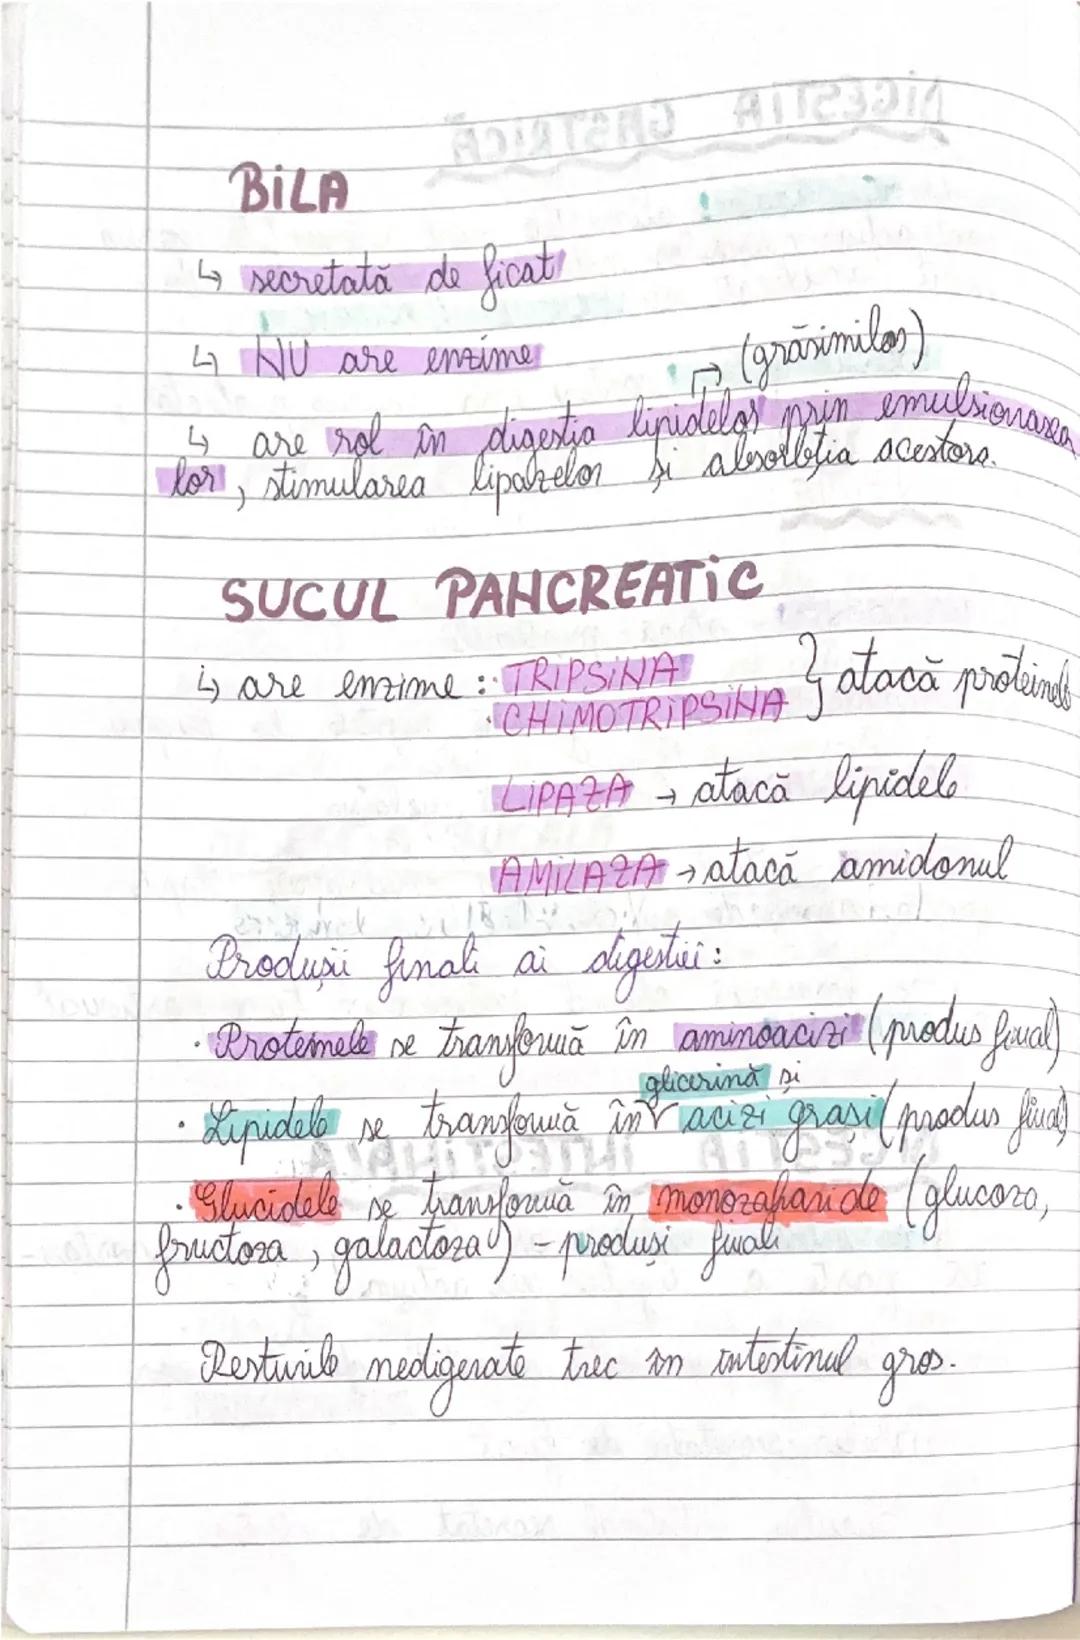 BILA
↳ secretată de ficat
↳ NU are enzime
↱ (grăsimilor)
↳ are rol în digestia lipidelor prin emulsionarea
lor, stimularea lipazelor și absorbția acestora.
SUCUL PANCREATIC
↳ are enzime : · TRIPSINA } atacă proteinele
· CHIMOTRIPSINA
LIPAZA → atacă lipidele
AMILAZA → atacă amidonul
Produșii finali ai digestiei :
· Proteinele se transformă în aminoacizi (produs final)
glicerină și
· Lipidele se transformă în acizi grași (produs final)
· Glucidele se transformă în monozaharide (glucoza,
fructoza, galactoza) - produși finali
Resturile nedigerate trec în intestinul gros.